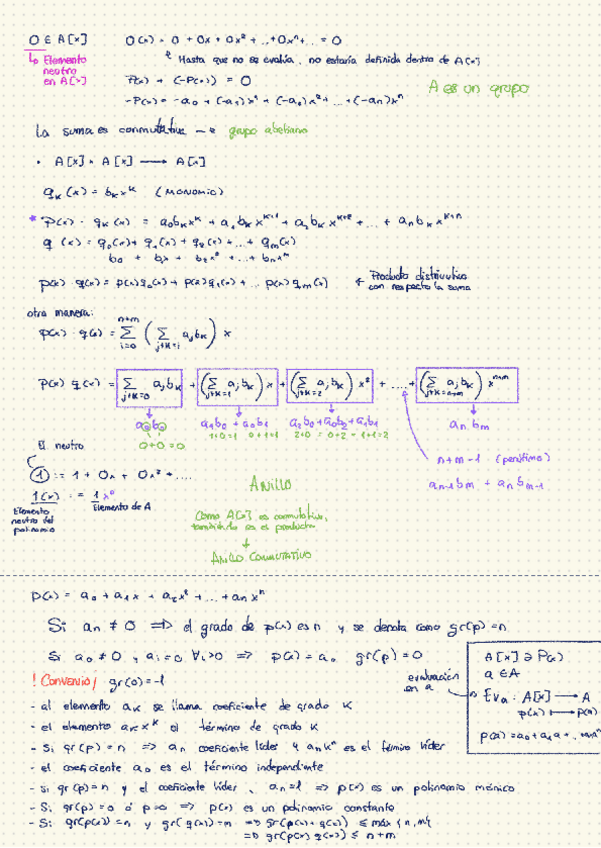 0 ∈ A[x]    0(x) = 0 + 0x + 0x² + ... + 0xⁿ + ... = 0
↳ Elemento neutro en A[x]
Hasta que no se evalúa, no estaría definida dentro de A[x]
P(x) + (-P(x)) = 0
-P(x) = -a₀ + (-a₁)x¹ + (-a₂)x² + ... + (-aₙ)xⁿ
A es un grupo
La suma es conmutativa → grupo abeliano
· A[x] × A[x] ⟶ A[x]
qₖ(x) = bₖxᵏ (MONOMIO)
* P(x) · qₖ(x) = a₀bₖxᵏ + a₁bₖxᵏ⁺¹ + a₂bₖxᵏ⁺² + ... + aₙbₖxᵏ⁺ⁿ
q(x) = q₀(x) + q₁(x) + q₂(x) + ... + qₘ(x)
b₀ + b₁x + b₂x² + ... + bₘxᵐ
p(x) · q(x) = p(x)q₀(x) + p(x)q₁(x) + ... p(x)qₘ(x)
Producto distributivo
con respecto la suma
otra manera:
p(x) · q(x) = Σ_{i=0}^{n+m} (Σ_{j+k=i} aⱼbₖ) x
p(x) q(x) = Σ_{j+k=0} aⱼbₖ + (Σ_{j+k=1} aⱼbₖ) x + (Σ_{j+k=2} aⱼbₖ) x² + .... + (Σ_{j+k=n+m} aⱼbₖ) xⁿ⁺ᵐ
a₀b₀    a₁b₀ + a₀b₁    a₂b₀ + a₀b₂ + a₁b₁    aₙbₘ
0+0=0    1+0=1    0+1=1    2+0 = 0+2 = 1+1=2
n+m-1 (penúltimo)
aₙ₋₁bₘ + aₙbₘ₋₁
El neutro
1 := 1 + 0x + 0x² + ....
1(x) := 1x⁰
Elemento neutro del polinomio
Elemento de A
ANILLO
Como A[x] es conmutativo,
también lo es el producto
↓
ANILLO CONMUTATIVO
p(x) = a₀ + a₁x + a₂x² + ... + aₙxⁿ
Si aₙ ≠ 0 ⟹ el grado de p(x) es n y se denota como gr(p) = n
Si a₀ ≠ 0, aᵢ = 0 ∀i>0 ⟹ p(x) = a₀    gr(p) = 0
! Convenio / gr(0) = -1
evaluación en a
A[x] ∋ P(x)
a ∈ A
Evₐ : A[x] ⟶ A
p(x) ⟼ p(a)
p(a) = a₀ + a₁a + ... aₙaⁿ
- al elemento aₖ se llama coeficiente de grado k
- el elemento aₖxᵏ el término de grado k
- Si gr(p) = n ⟹ aₙ coeficiente líder y aₙxⁿ es el término líder
- el coeficiente a₀ es el término independiente
- si gr(p) = n y el coeficiente líder, aₙ = 1 ⟹ p(x) es un polinomio mónico
- Si gr(p) = 0 ó p = 0 ⟹ p(x) es un polinomio constante
- Si gr(p(x)) = n y gr(q(x)) = m ⟹ gr(p(x) + q(x)) ≤ máx{n, m}
⟹ gr(p(x) q(x)) ≤ n+m